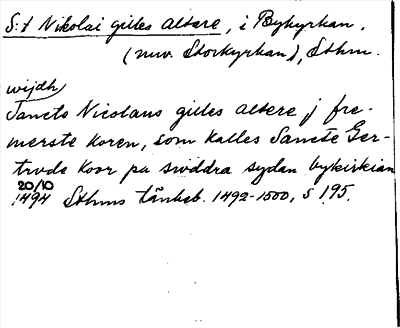 S:t Nikolai gilles altare, i Bykyrkan,
(nuv. Storkyrkan), Sthm.
wijdh
Sancte Nicolaus gilles altere j fre-
merste koren, som kalles Sancte Ger-
trvde koor pa swddra sydan bykirkian
20/10
1494 Sthms tänkeb. 1492-1500, s 195.